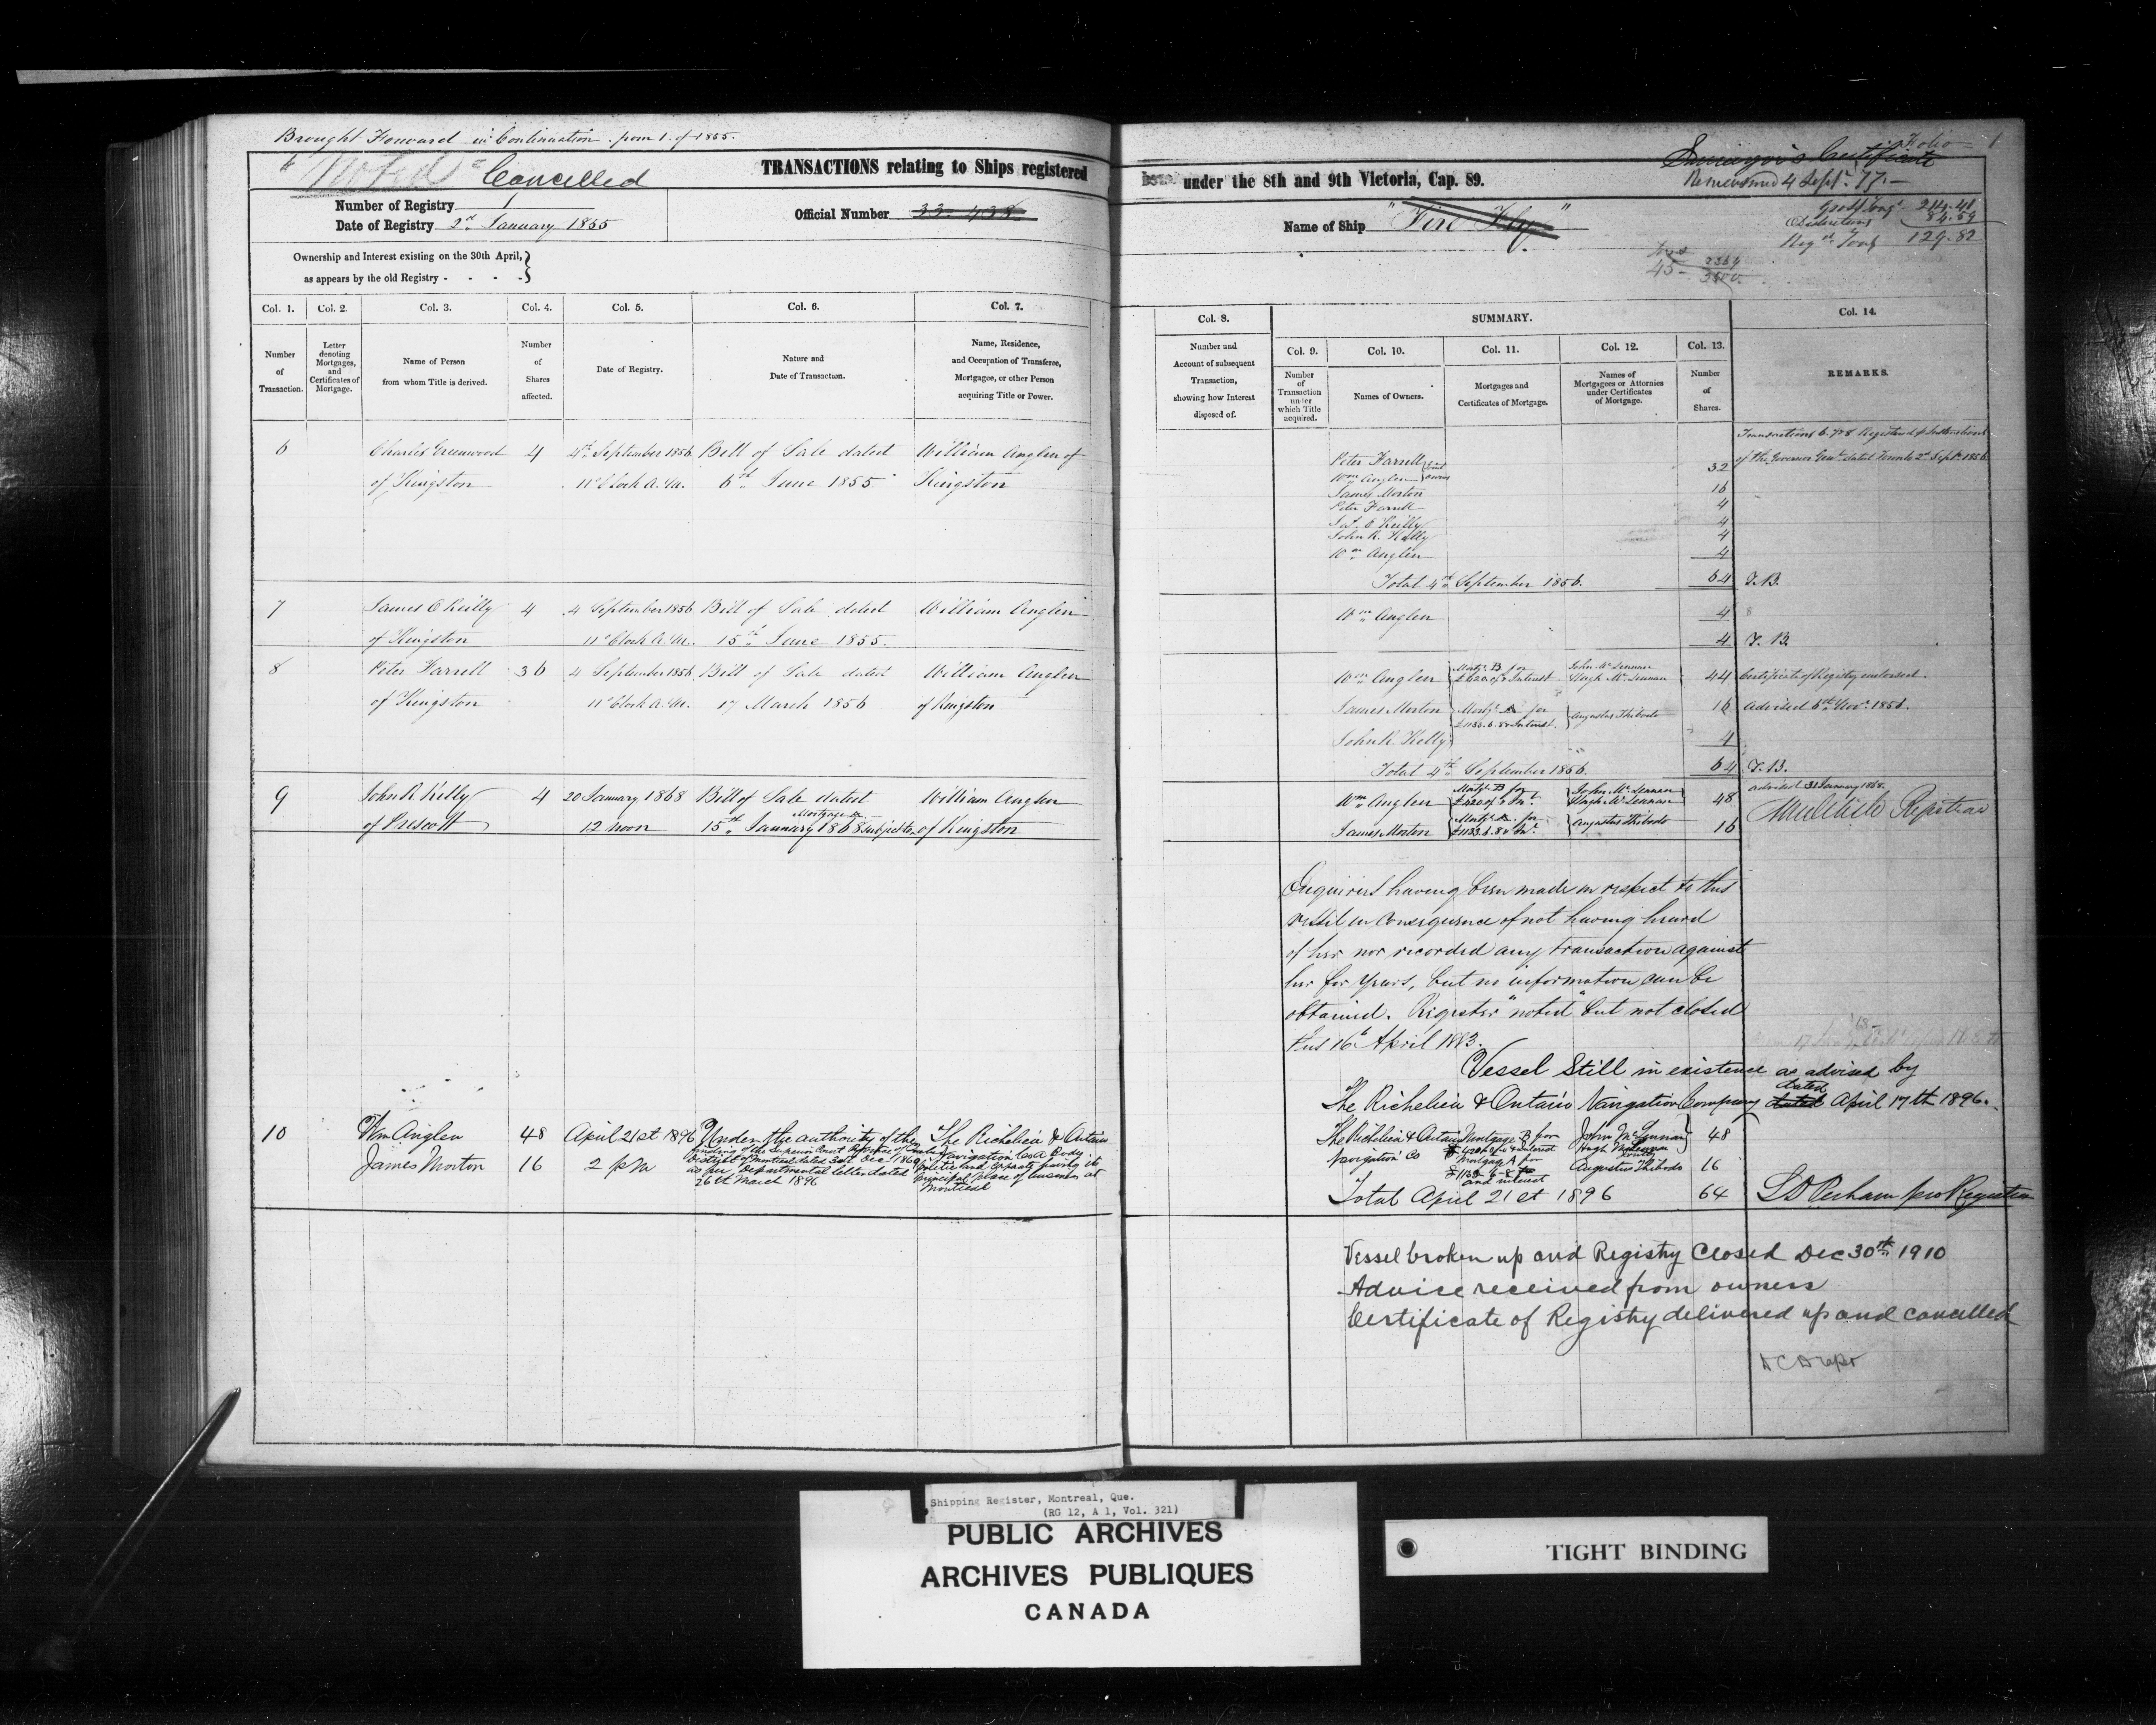 Brought Forward in Continuation from 1. of 1855.
Noted Cancelled
TRANSACTIONS relating to Ships registered
Number of Registry 1
Date of Registry 2nd January 1855
Official Number 33.438
Ownership and Interest existing on the 30th April,
as appears by the old Registry - - - -
Col. 1. Col. 2. Col. 3. Col. 4. Col. 5. Col. 6. Col. 7.
Number of Transaction.
Letter denoting Mortgages, and Certificates of Mortgage.
Name of Person from whom Title is derived.
Number of Shares affected.
Date of Registry.
Nature and Date of Transaction.
Name, Residence, and Occupation of Transferee, Mortgagee, or other Person acquiring Title or Power.
6 Charles Greenwood 4 4th September 1856 Bill of Sale dated William Anglen of
of Kingston 11 o'Clock A.M. 6th June 1855. Kingston
7 James O Reilly 4 4 September 1856 Bill of Sale dated William Anglen
of Kingston 11 o'Clock A.M. 15th June 1855.
8 Peter Farrell 36 4 September 1856 Bill of Sale dated William Anglen
of Kingston 11 o'Clock A.M. 17 March 1856 of Kingston
9 John R Kelly 4 20 January 1868 Bill of Sale dated William Anglen
of Prescott 12 noon 15th January 1868 subject to Mortgage of Kingston
10 Wm Anglen 48 April 21st 1896 Under the authority of the The Richelieu & Ontario
James Morton 16 2 p m
finding of the Superior Court Province of
District of Montreal dated 30th Dec 1869
as per Departmental letter dated
26th March 1896
Navigation Co a Body
Politic and Corporate having its
principal place of business at
Montreal
under the 8th and 9th Victoria, Cap. 89.
Folio 1
Surveyor's Certificate
Remeasured 4 Sept. 77.
Name of Ship "Fire Fly"
Gross Tonge 214.41
Deductions 84.59
Regd Tong 129.82
45
Col. 8. SUMMARY. Col. 14.
Col. 9. Col. 10. Col. 11. Col. 12. Col. 13.
Number and Account of subsequent Transaction, showing how Interest disposed of.
Number of Transaction under which Title acquired.
Names of Owners.
Mortgages and Certificates of Mortgage.
Names of Mortgagees or Attornies under Certificates of Mortgage.
Number of Shares.
REMARKS.
Transactions 6. 7 & 8 Registered p Instructions
of the Governor Genl. dated Toronto 2d Sept. 1856
Peter Farrell joint
Wm Anglen owners 32
James Morton 16
Peter Farrell 4
Jas. O Reilly 4
John R. Kelly 4
Wm Anglen 4
Total 4th September 1856. 64 T.B.
Wm Anglen 4
4 T.B.
Wm Anglen Mortg. B for John McLennan 44 Certificate of Registry endorsed.
£620.0.0 & Interest Hugh McLennan
James Morton Mortg. A for Augustus Thibodo 16 Advised 6th Nov. 1856.
£1133.6.8 & Interest.
John R. Kelly 4
Total 4th September 1856. 64 T.B.
Wm Anglen Mortg. B for John McLennan 48 advised 31 January 1868.
Hugh McLennan
James Morton Mortg. A for Augustus Thibodo 16 Registrar
£1133.6.8 & Int.
Enquiries having been made in respect to this
vessel in Consequence of not having heard
of her nor recorded any transaction against
her for years, but no information can be
obtained. Register "noted" but not closed
this 16th April 1883.
Vessel Still in existence as advised by
The Richelieu & Ontario Navigation Company dated April 17th 1896.
The Richelieu & Ontario Mortgage B for John McLennan 48
Navigation Co Hugh McLennan
Mortgage A for Augustus Thibodo 16
£1133-6-8
and interest
Total April 21st 1896 64 pro Registrar
Vessel broken up and Registry Closed Dec 30th 1910
Advice received from owners
Certificate of Registry delivered up and cancelled
Shipping Register, Montreal, Que.
(RG 12, A 1, Vol. 321)
PUBLIC ARCHIVES
ARCHIVES PUBLIQUES
CANADA
TIGHT BINDING